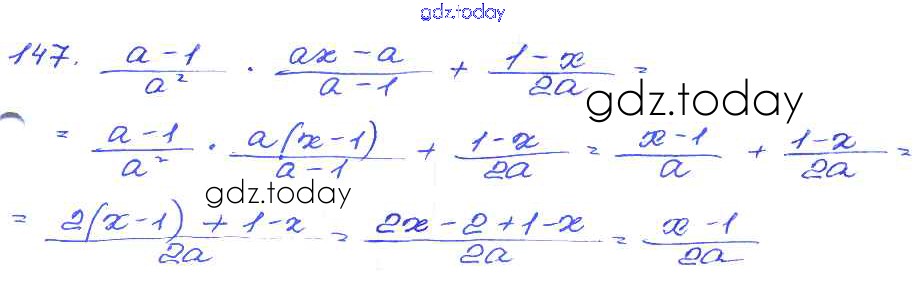 gdz.today
147. (a-1)/a² · (ax-a)/(a-1) + (1-x)/2a =
gdz.today
= (a-1)/a² · a(x-1)/(a-1) + (1-x)/2a = (x-1)/a + (1-x)/2a =
gdz.today
= (2(x-1)+1-x)/2a = (2x-2+1-x)/2a = (x-1)/2a